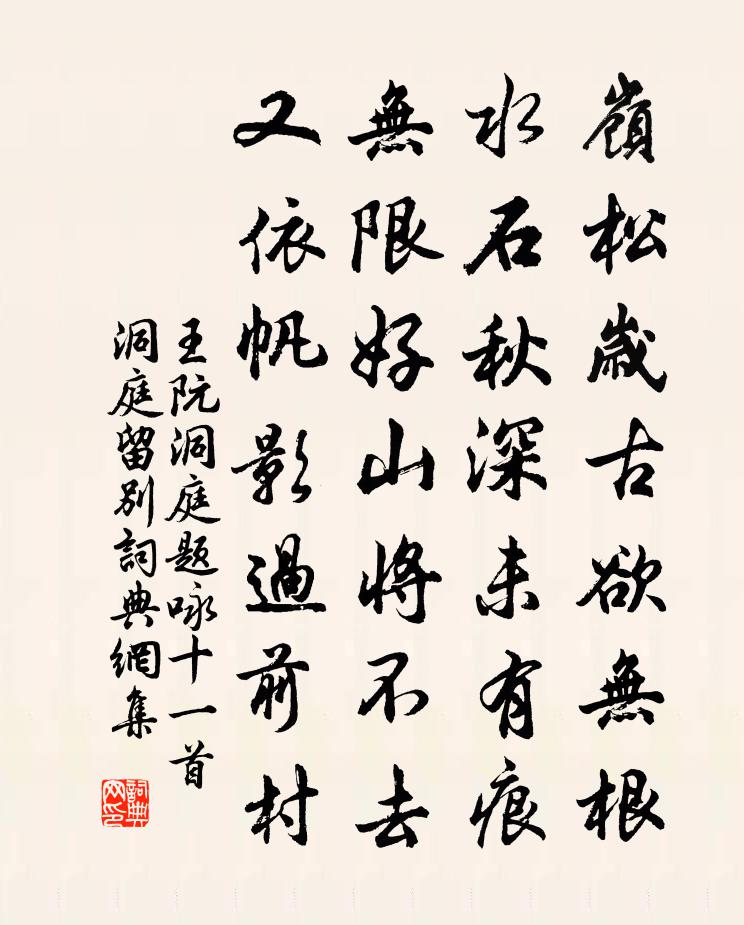 嶺松歲古欲無根
水石秋深未有痕
無限好山將不去
又依帆影過前村
王阮洞庭題咏十一首
洞庭留別詞典網集
詞典
网印